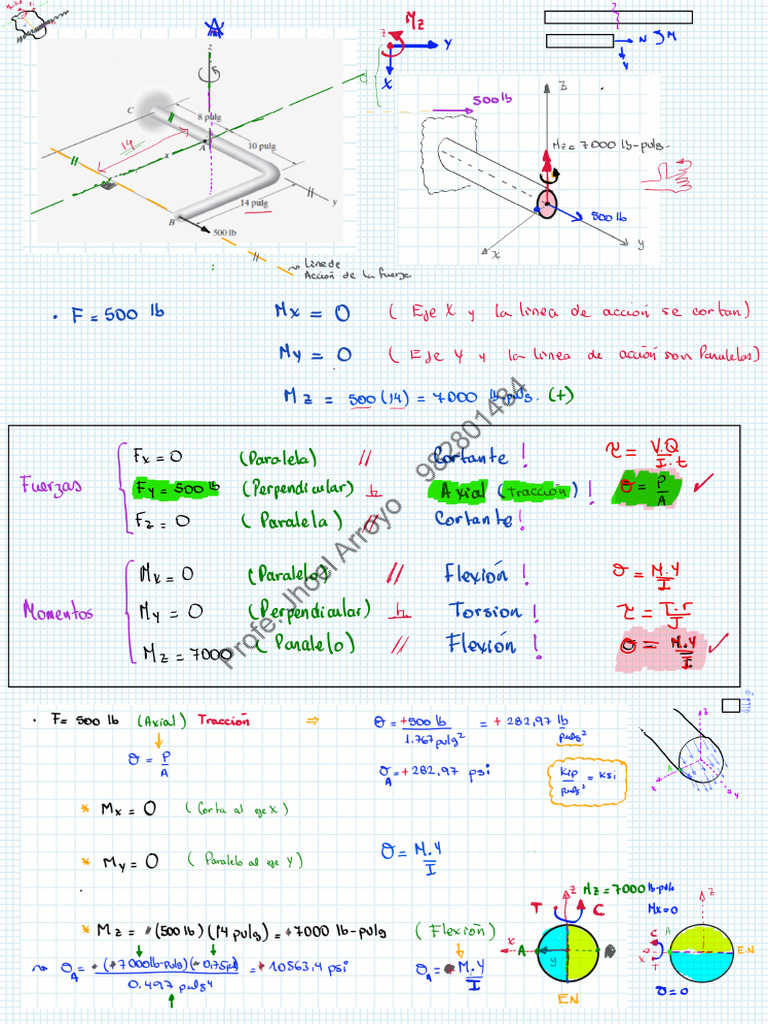 Mz
z
Y
X
N
M
V
z
C
8 pulg
A
14
10 pulg
x
14 pulg
y
B
500 lb
Linea de
Acción de la fuerza
500 lb
Z
Mz = 7000 lb-pulg.
500 lb
X
y
• F = 500 lb
Mx = 0 ( Eje X y la linea de acción se cortan)
My = 0 ( Eje Y y la linea de acción son Paralelas)
Mz = 500 (14) = 7000 lb-pulg. (+)
Fuerzas
Fx = 0 (Paralela) // Cortante ! τ = V.Q / I.t
Fy = 500 lb (Perpendicular) Axial (tracción) ! σ = P / A
Fz = 0 (Paralela) // Cortante !
Momentos
Mx = 0 (Paralelo) // Flexión ! σ = M.Y / I
My = 0 (Perpendicular) Torsion ! τ = T.r / J
Mz = 7000 (Paralelo) // Flexión ! σ = M.Y / I
Profe. Jhoel Arroyo 982801484
• F = 500 lb (Axial) Tracción ⇒ σ = +500 lb / 1.767 pulg² = + 282,97 lb / pulg²
σ = P / A
σA = + 282,97 psi
Kip / pulg² = ksi
z
A
x
y
* Mx = 0 (Corta al eje X)
* My = 0 (Paralelo al eje Y)
σ = M.Y / I
* Mz = (500 lb)(14 pulg) = +7000 lb-pulg (Flexión)
σA = (7000 lb-pulg)(0.75pl) / 0.497 pulg⁴ = + 10563,4 psi
σA = M.Y / I
z Mz = 7000 lb-pulg
T C
x A y
EN
Mx = 0
z
C A
x T
E.N
σ = 0